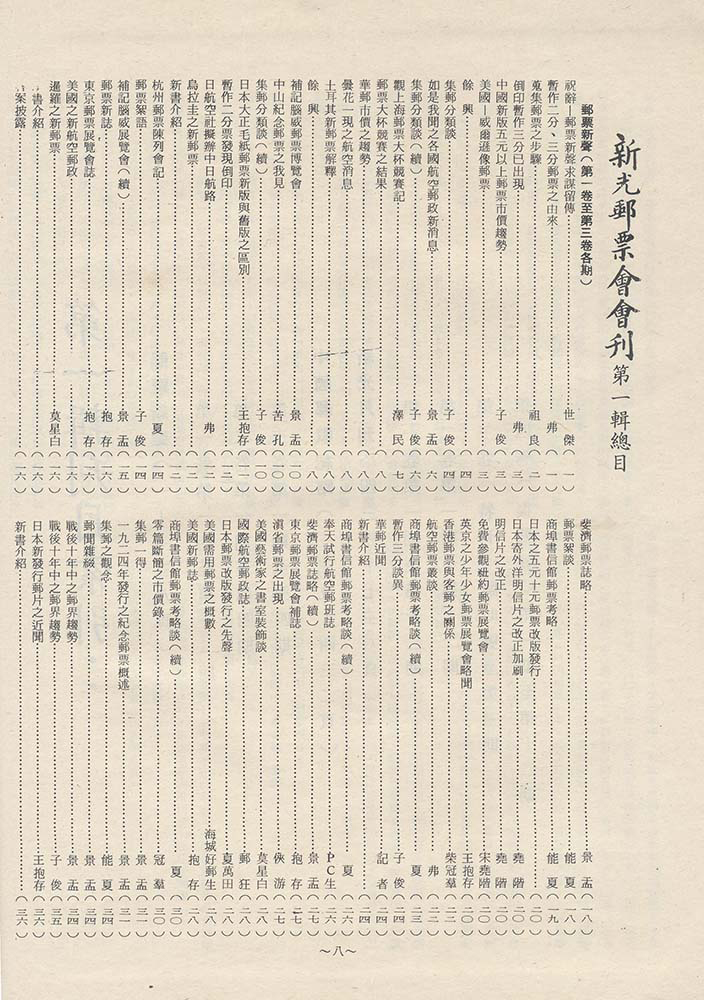 新光郵票會會刊 第一輯總目
郵票新聲（第一卷至第三卷各期）
祝辭—郵票新聲求謀留傳……世傑（一）
暫作二分、三分郵票之由來……弗（一）
蒐集郵票之步驟……祖良（二）
倒印暫作三分已出現……弗（三）
中國新版五元以上郵票市價趨勢……子俊（三）
美國—威爾遜像郵票……（三）
餘興……（四）
集郵分類談……子俊（四）
如是我聞之各國航空郵政新消息……景盂（六）
集郵分類談（續）……子俊（六）
觀上海郵票大杯競賽記……澤民（七）
郵票大杯競賽之結果……（八）
華郵市價之趨勢……（八）
曇花一現之航空消息……（八）
土耳其新郵票解釋……（八）
餘興……（八）
補記腦威郵票博覽會……景盂（一〇）
中山紀念郵票之我見……苦孔（一〇）
集郵分類談（續）……子俊（一〇）
日本大正毛紙郵票新版與舊版之區別……王抱存（一一）
暫作二分票發現倒印……（一二）
日航空社擬辦中日航路……弗（一二）
烏拉圭之新郵票……（一二）
新書介紹……（一二）
杭州郵票陳列會記……夏（一四）
郵票絮語……子俊（一四）
補記腦威展覽會（續）……景盂（一五）
郵票新誌……抱存（一六）
東京郵票展覽會誌……抱存（一六）
美國之新航空郵政……（一六）
暹羅之新郵票……莫星白（一六）
書介紹……（一六）
案披露……（一六）
斐濟郵票誌略……景盂（一八）
郵票絮談……能夏（一八）
商埠書信館郵票考略……能夏（一九）
日本之五元十元郵票改版發行……（二〇）
日本寄外洋明信片之改正加刷……堯階（二〇）
明信片之改正……堯階（二〇）
免費參觀紐約郵票展覽會……宋堯階（二〇）
英京之少年少女郵票展覽會略聞……王抱存（二〇）
香港郵票與客郵之關係……柴冠羣（二二）
航空郵票叢談……弗（二二）
商埠書信館郵票考略談（續）……夏（二三）
暫作三分談異……子俊（二四）
華郵近聞……記者（二四）
新書介紹……（二四）
商埠書信館郵票考略談（續）……夏（二六）
奉天試行航空郵班誌……PC生（二六）
斐濟郵票誌略（續）……景盂（二七）
東京郵票展覽會補誌……抱存（二七）
滇省郵票之近聞……俠游（二七）
美國藝術家之書室裝飾談……莫星白（二八）
國際航空郵政誌……郵狂（二八）
日本郵票改版發行之先聲……夏萬田（二八）
美國需用郵票之概數……海城好郵生（二八）
美國新郵誌……抱存（二八）
商埠書信館郵票考略談（續）……夏（三〇）
零篇斷簡之市價錄……冠羣（三〇）
集郵一得……景盂（三一）
一九二四年發行之紀念郵票概述……景盂（三一）
集郵之觀念……能夏（三四）
郵聞雜綴……景盂（三四）
戰後十年中之郵界趨勢……景盂（三四）
戰後十年中之郵界趨勢……子俊（三五）
日本新發行郵片之近聞……王抱存（三六）
新書介紹……（三六）
～八～